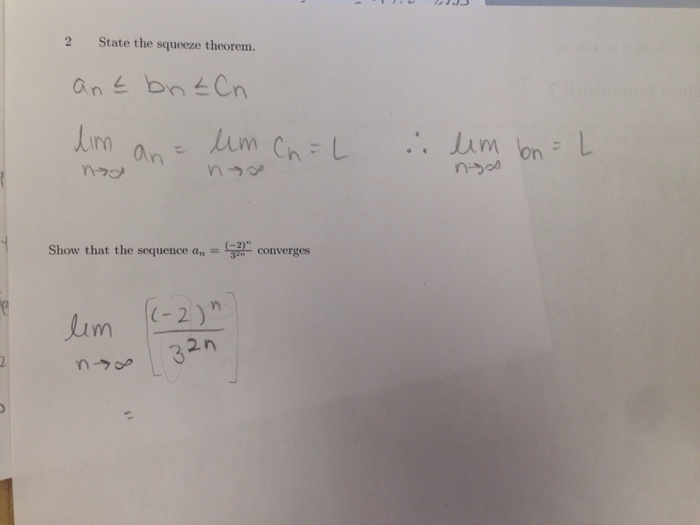 2 State the squeeze theorem.
an ≤ bn ≤ Cn
lim n→∞ an = lim n→∞ Cn = L ∴ lim n→∞ bn = L
Show that the sequence aₙ = (-2)ⁿ/3²ⁿ converges
lim n→∞ [(-2)ⁿ/3²ⁿ]
=